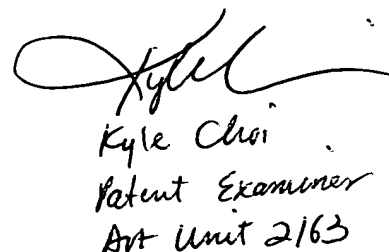 Kyle
Kyle Choi
Patent Examiner
Art Unit 2163